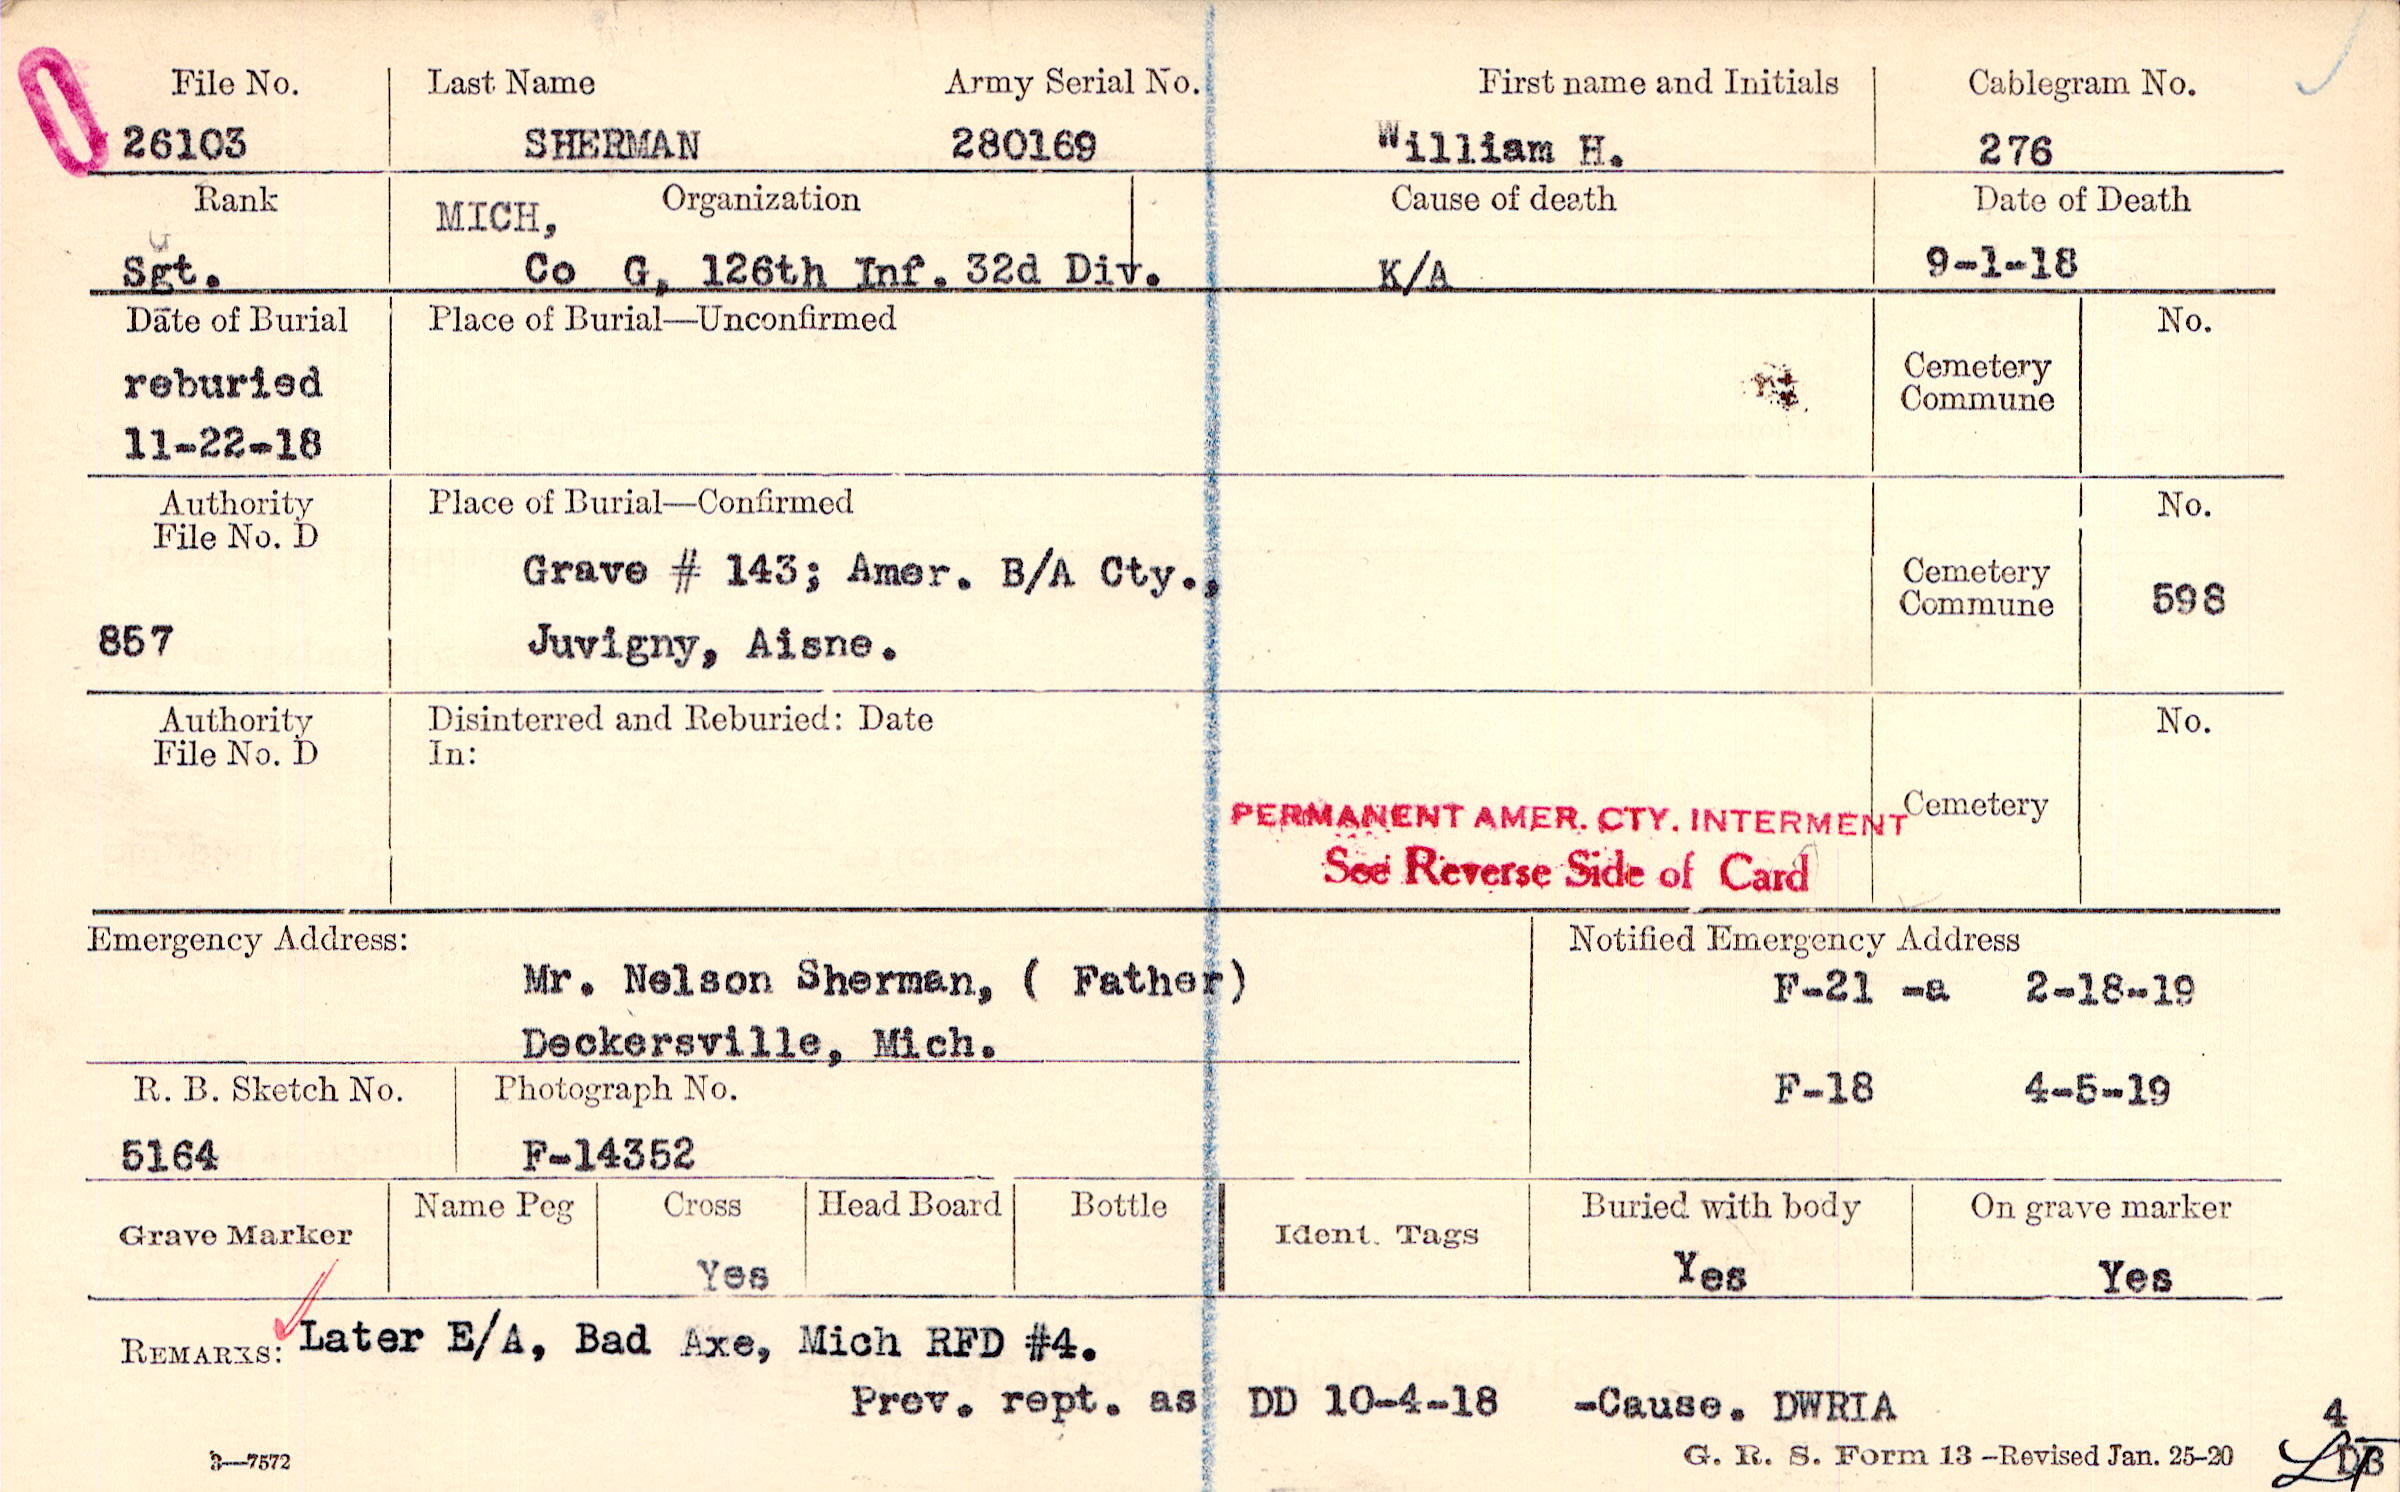 File No. Last Name Army Serial No. First name and Initials Cablegram No.
26103 SHERMAN 280169 William H. 276
Rank Organization Cause of death Date of Death
MICH,
Sgt. Co G, 126th Inf. 32d Div. K/A 9-1-18
Date of Burial Place of Burial—Unconfirmed No.
reburied Cemetery
Commune
11-22-18
Authority Place of Burial—Confirmed No.
File No. D
Grave # 143; Amer. B/A Cty., Cemetery
Commune 598
857 Juvigny, Aisne.
Authority Disinterred and Reburied: Date No.
File No. D In:
PERMANENT AMER. CTY. INTERMENT Cemetery
See Reverse Side of Card
Emergency Address: Notified Emergency Address
Mr. Nelson Sherman, ( Father) F-21 -a 2-18-19
Deckersville, Mich.
R. B. Sketch No. Photograph No. F-18 4-5-19
5164 F-14352
Name Peg Cross Head Board Bottle Buried with body On grave marker
Grave Marker Ident. Tags
Yes Yes Yes
REMARKS: Later E/A, Bad Axe, Mich RFD #4.
Prev. rept. as DD 10-4-18 -Cause. DWRIA
4
3—7572 G. R. S. Form 13 -Revised Jan. 25-20